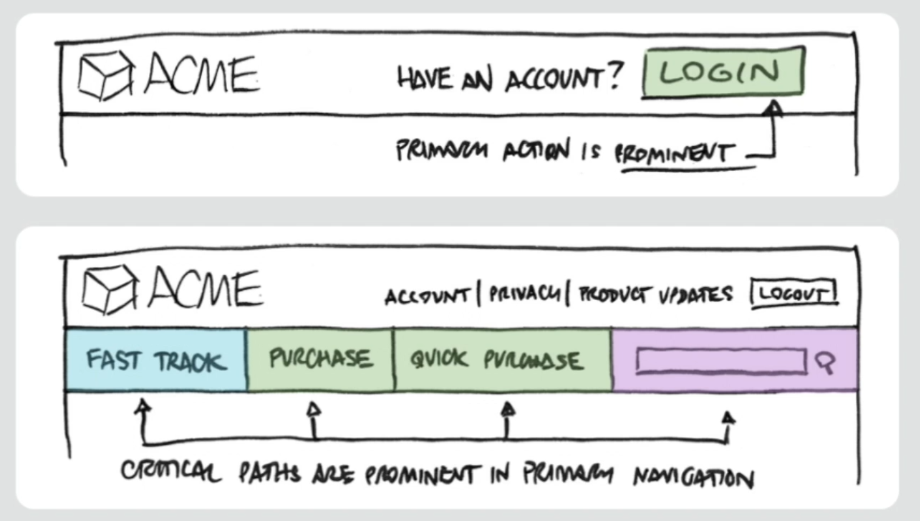 ACME HAVE AN ACCOUNT? LOGIN
PRIMARY ACTION IS PROMINENT
ACME ACCOUNT | PRIVACY | PRODUCT UPDATES LOGOUT
FAST TRACK PURCHASE QUICK PURCHASE
CRITICAL PATHS ARE PROMINENT IN PRIMARY NAVIGATION